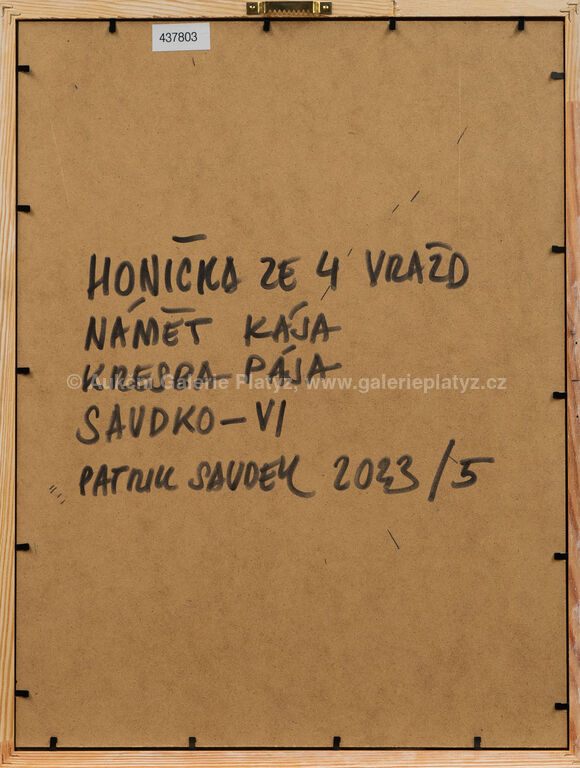 437803
HONIČKA ZE 4 VRAŽD
NÁMĚT KÁJA
KRESBA PÁJA
© Aukční Galerie Platýz, www.galerieplatyz.cz
SAUDKO-VI
PATRIK SAUDEK 2023/5